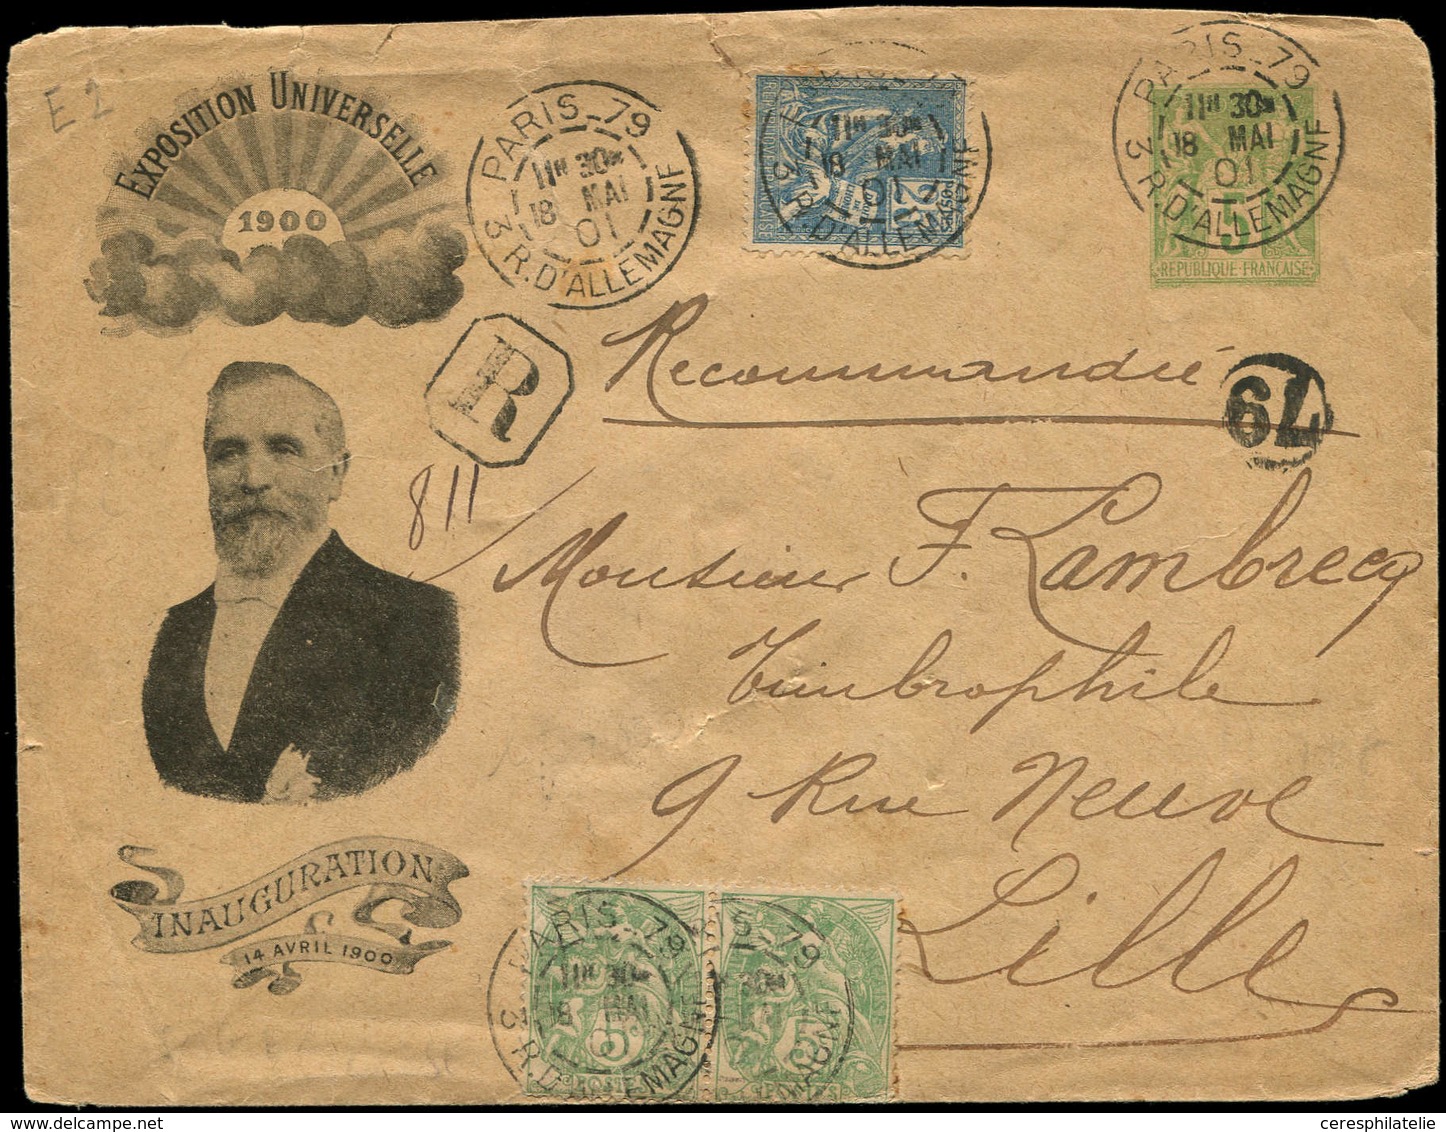 E 2
EXPOSITION UNIVERSELLE
1900
PARIS_79
11H 30M
18 MAI
01
3 R.D'ALLEMAGNE
PARIS_79
11H 30M
18 MAI
01
3 R.D'ALLEMAGNE
25
PARIS_79
11H 30M
18 MAI
01
3 R.D'ALLEMAGNE
5
REPUBLIQUE FRANÇAISE
R
811
Recommandée
79
Monsieur F. Lambrecq
Timbrophile
9 Rue Neuve
Lille
INAUGURATION
14 AVRIL 1900
PARIS_79
11H 30M
18 MAI
3 R.D'ALLEMAGNE
5c
POSTES
5c
POSTES
ceresphilatelie